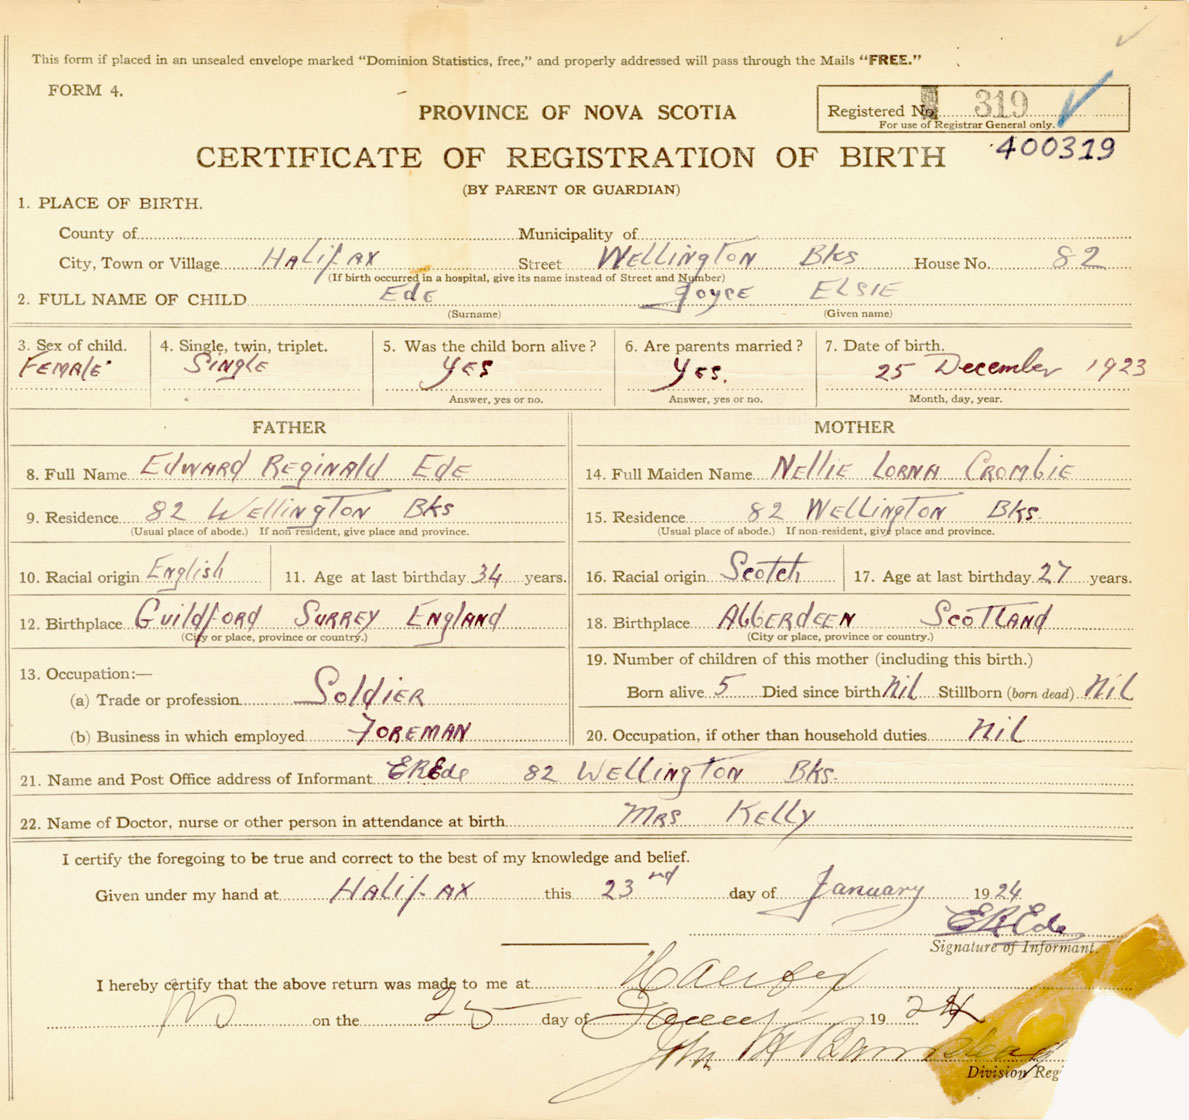 This form if placed in an unsealed envelope marked "Dominion Statistics, free," and properly addressed will pass through the Mails "FREE."
FORM 4.
PROVINCE OF NOVA SCOTIA
Registered No. 319
For use of Registrar General only.
CERTIFICATE OF REGISTRATION OF BIRTH 400319
(BY PARENT OR GUARDIAN)
1. PLACE OF BIRTH.
County of Municipality of
City, Town or Village Halifax Street Wellington Bks House No. 82
(If birth occurred in a hospital, give its name instead of Street and Number)
2. FULL NAME OF CHILD Ede Joyce Elsie
(Surname) (Given name)
3. Sex of child. 4. Single, twin, triplet. 5. Was the child born alive? 6. Are parents married? 7. Date of birth.
Female Single Yes Yes. 25 December 1923
Answer, yes or no. Answer, yes or no. Month, day, year.
FATHER MOTHER
8. Full Name Edward Reginald Ede 14. Full Maiden Name Nellie Lorna Crombie
9. Residence 82 Wellington Bks 15. Residence 82 Wellington Bks.
(Usual place of abode.) If non resident, give place and province. (Usual place of abode.) If non-resident, give place and province.
10. Racial origin English 11. Age at last birthday 34 years. 16. Racial origin Scotch 17. Age at last birthday 27 years.
12. Birthplace Guildford Surrey England 18. Birthplace Abberdeen Scotland
(City or place, province or country.) (City or place, province or country.)
13. Occupation:— 19. Number of children of this mother (including this birth.)
(a) Trade or profession Soldier Born alive 5 Died since birth Nil Stillborn (born dead) Nil
(b) Business in which employed Foreman 20. Occupation, if other than household duties Nil
21. Name and Post Office address of Informant E R Ede 82 Wellington Bks.
22. Name of Doctor, nurse or other person in attendance at birth Mrs Kelly
I certify the foregoing to be true and correct to the best of my knowledge and belief.
Given under my hand at Halifax this 23rd day of January 1924
E R Ede
Signature of Informant.
I hereby certify that the above return was made to me at Halifax
on the 25 day of 1924
John H
Division Reg